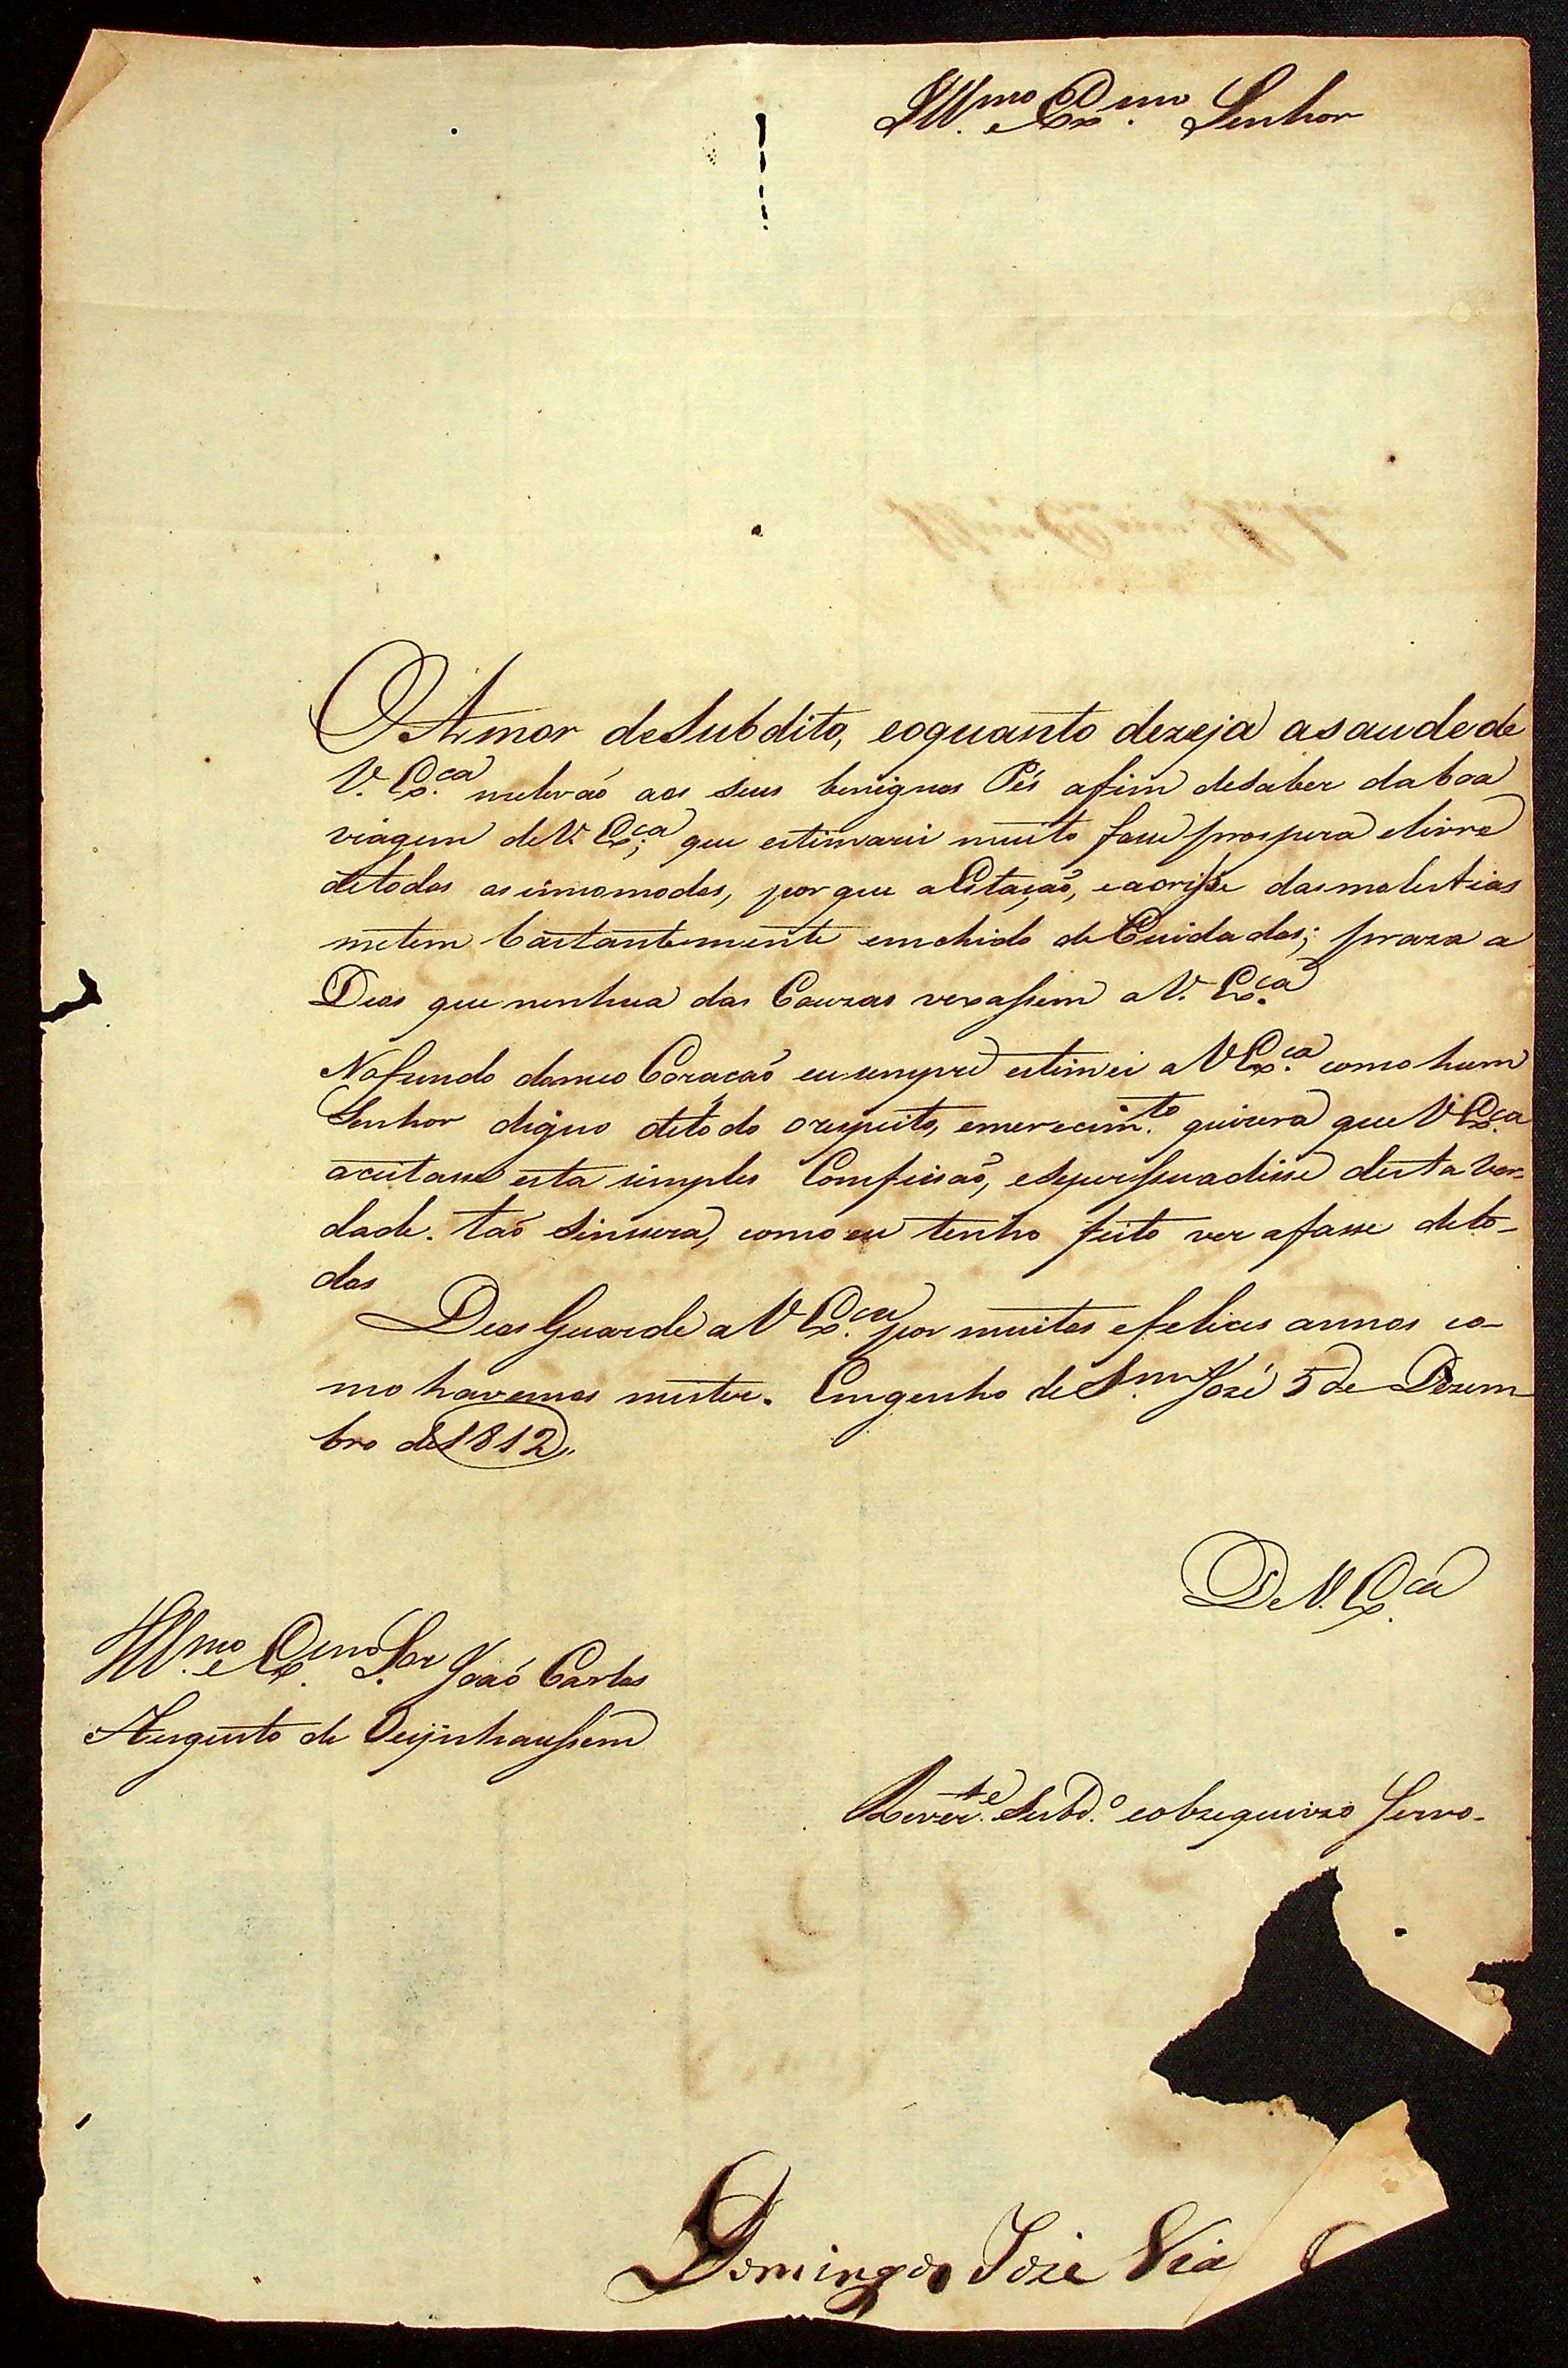 Ill.mo e Ex.mo Senhor
O Amor de Subdito, eoquanto dezeja asaudede
V. Ex.ca melevaó aos seus benignos Pés afim desaber daboa
viagem de V. Ex.ca; que estimarei muito fosse prospera elivre
detodos os incomodos, porque aEstação, eacrise dasmolestias
metem bastantemente enchido de Cuidados; praza a
Deos que nenhua das Cauzas vexassem a V. Ex.ca
Nofundo domeo Coração eusempre estimei a V Ex.ca como hum
Senhor digno detodo orespeito, emerecim.to quizera que V Ex.ca
aceitasse esta simples Comfissaó, esepersuadisse desta Ver-
dade. taó Sinsera, como eu tenho feito ver afasse deto-
dos
Deos Guarde a V Ex.ca por muitos efelices annos co-
mo havemos mister. Emgenho de S.m José 5 de Dezem
bro de 1812,,
De V. Ex.ca
Ill.mo e Ex.mo S.or Joaó Carlos
Augusto de Oeijnhaussem
Rever.te Subd.o eobzequiozo Servo.
Domingos Joze Via